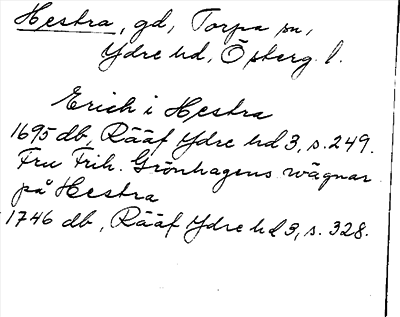 Hestra, gd, Torpa sn,
Ydre hd, Österg. l.
Erich i Hestra
1695 db, Rääf Ydre hd 3, s. 249.
Fru Frih. Grönhagens wägnar
på Hestra
1746 db, Rääf Ydre hd 3, s. 328.